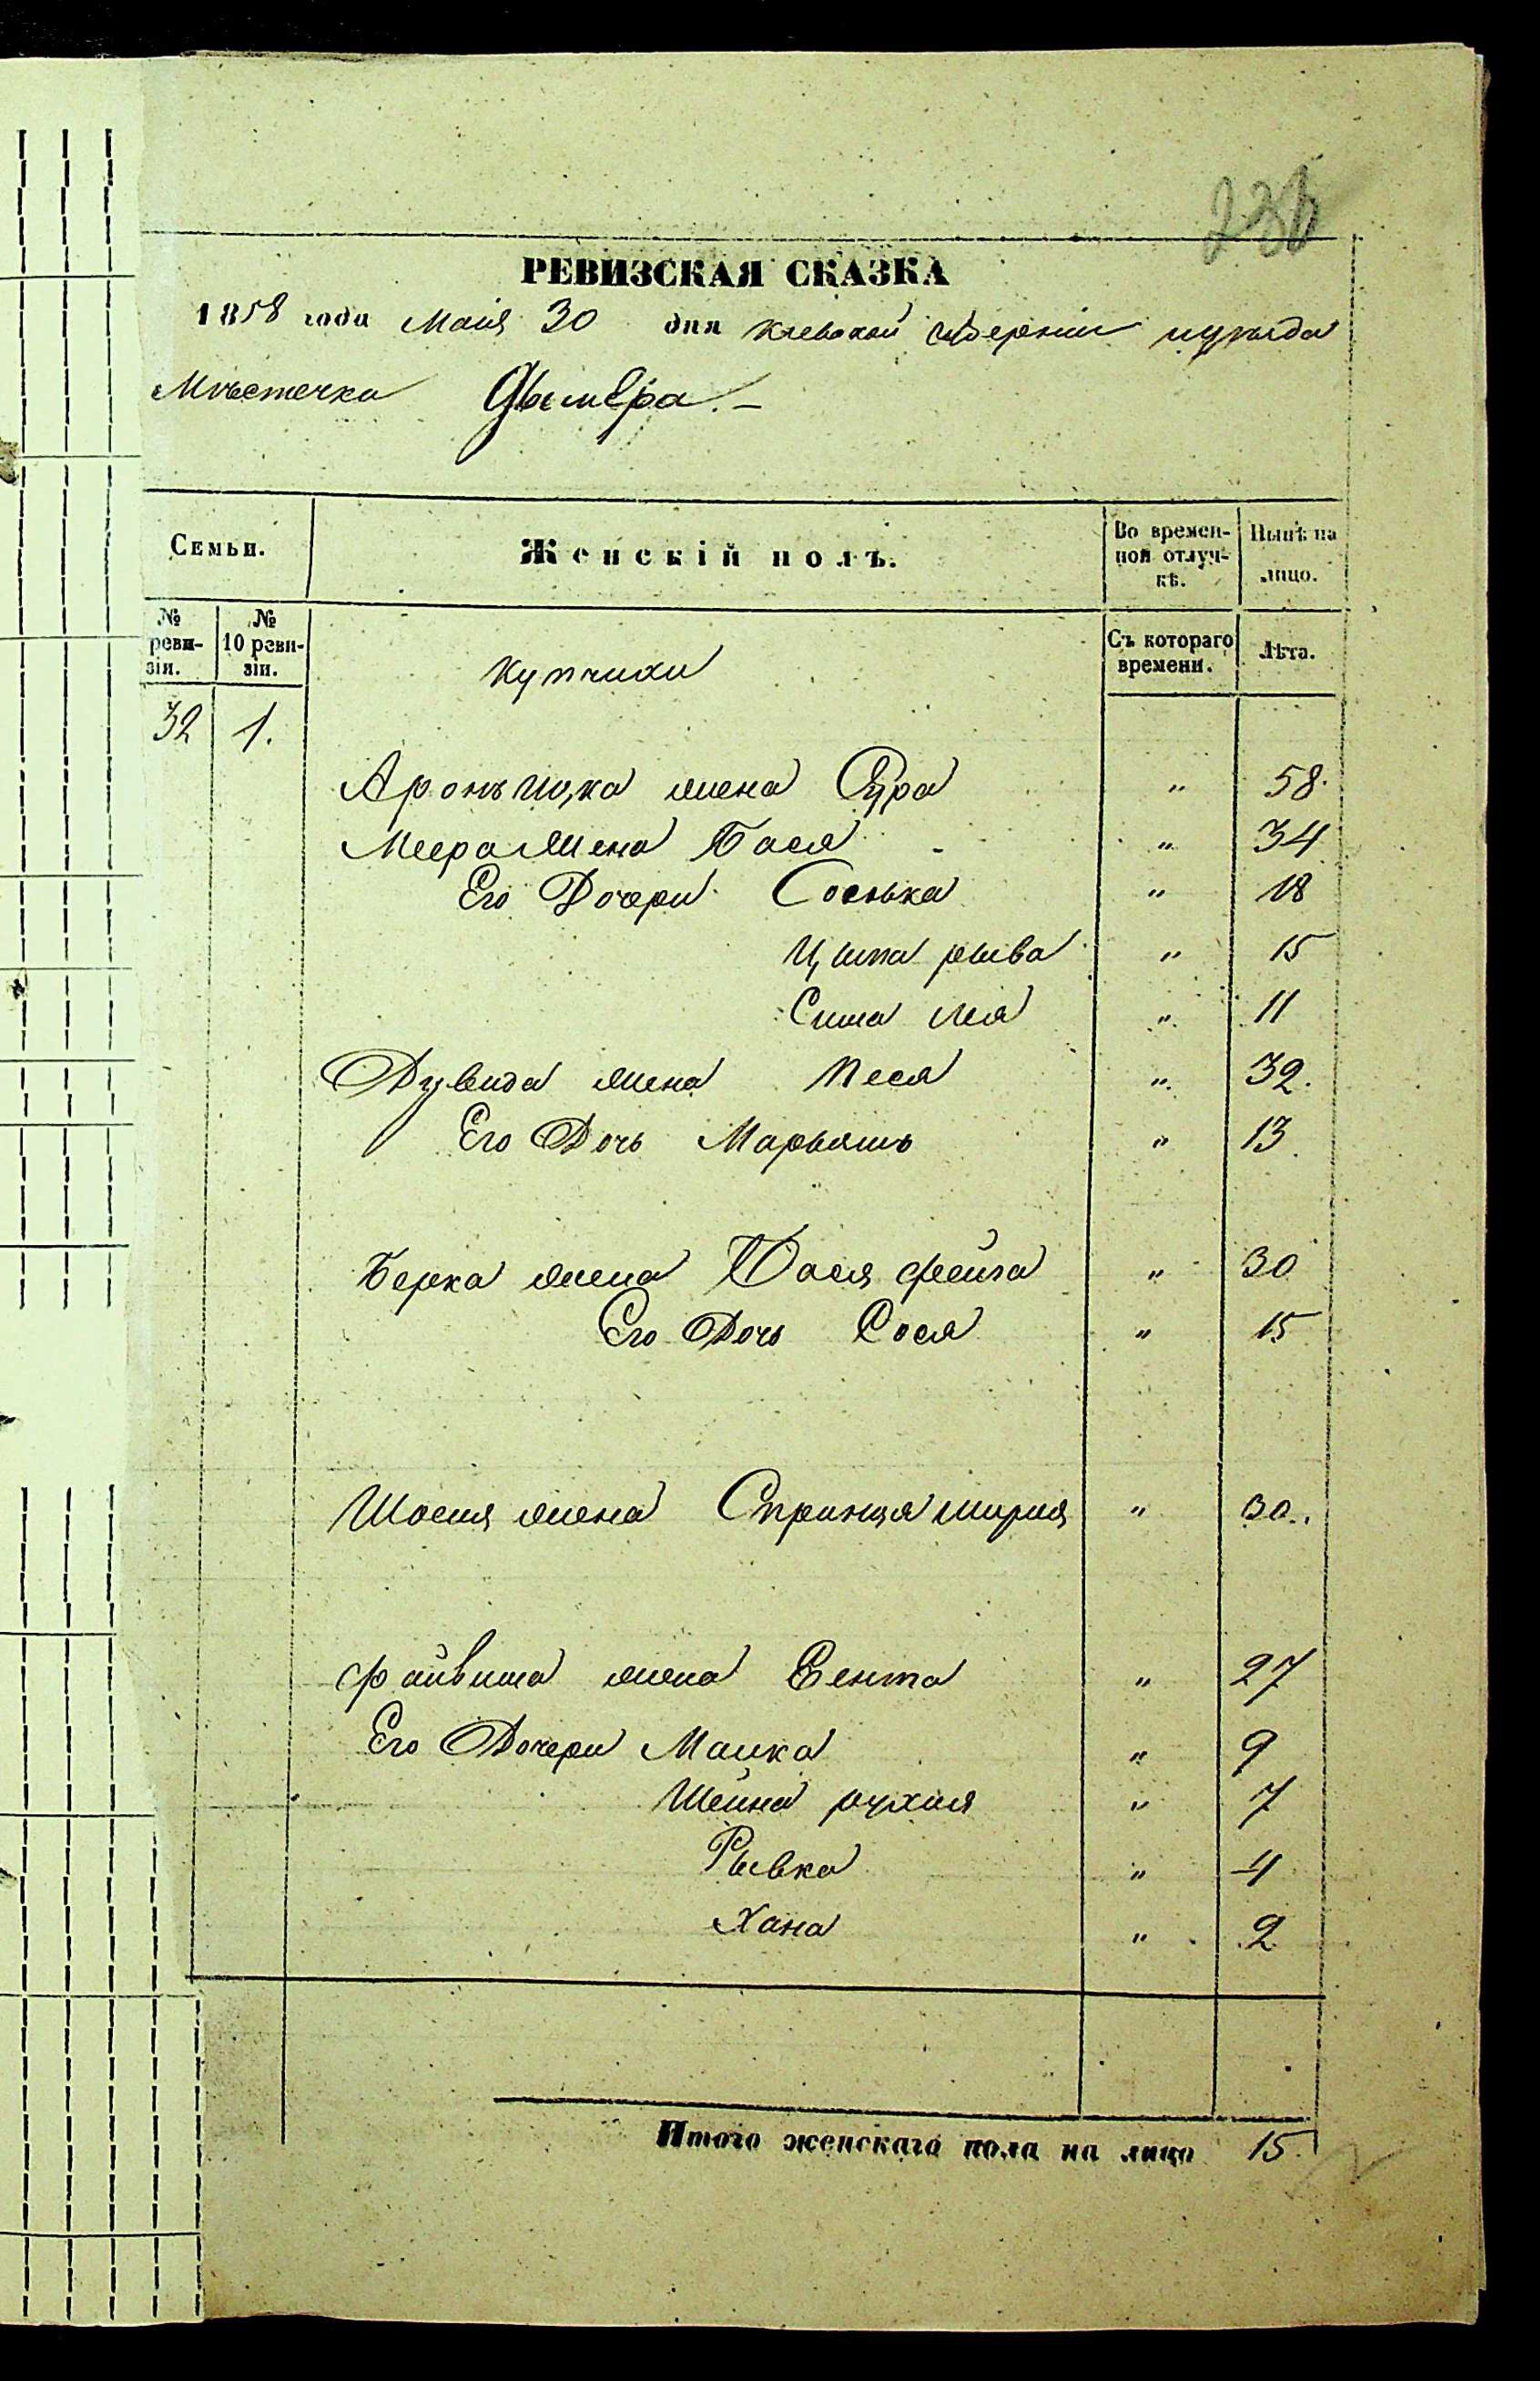 236
РЕВИЗСКАЯ СКАЗКА
1858 года Маія 30 дня Киевской Губерніи иуѣзда
Мѣстечка Дымера.–
Семьи.
Женскій полъ.
Во времен-
ной отлуч-
кѣ.
Нынѣ на
лицо.
№
реви-
зіи.
№
10 реви-
зіи.
Купчихи
Съ котораго
времени.
Лѣта.
32 1.
Аронъ Ицка жена Сура " 58.
Меера жена Бася " 34
Его Дочери Соснька " 18
Ципа рыва " 15
Сима лея " 11
Дувида жена Песя " 32.
Его Дочь Марьяшь " 13.
Берка жена Бася фейга " 30
Его Дочь Сося " 15
Шоеля жена Спринця мирия " 30.
файвиша жена Ента " 27
Его Дочери Маика " 9
Шеина рухля " 7
Рывка " 4
Хана " 2
Итого женскаго пола на лицо 15.